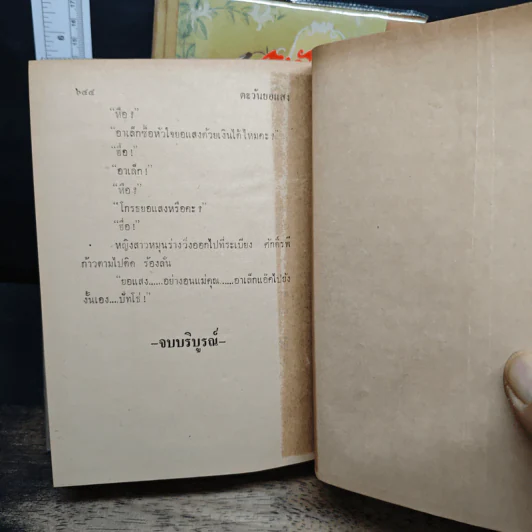 ๖๔๔ ตะวันยอแสง
"หือ !"
"อาเล็กซื้อหัวใจยอแสงด้วยเงินได้ไหมคะ !"
"ซื่อ !"
"อาเล็ก !"
"หือ !"
"โกรธยอแสงหรือคะ !"
"ซื่อ !"
หญิงสาวหมุนร่างวิ่งออกไปที่ระเบียง ศักดิ์รพี
ก้าวตามไปติด ร้องลั่น
"ยอแสง......อย่างอนแม่คุณ......อาเล็กแอ๊คไปยัง
งั้นเอง....บัทโธ่ !"
–จบบริบูรณ์–